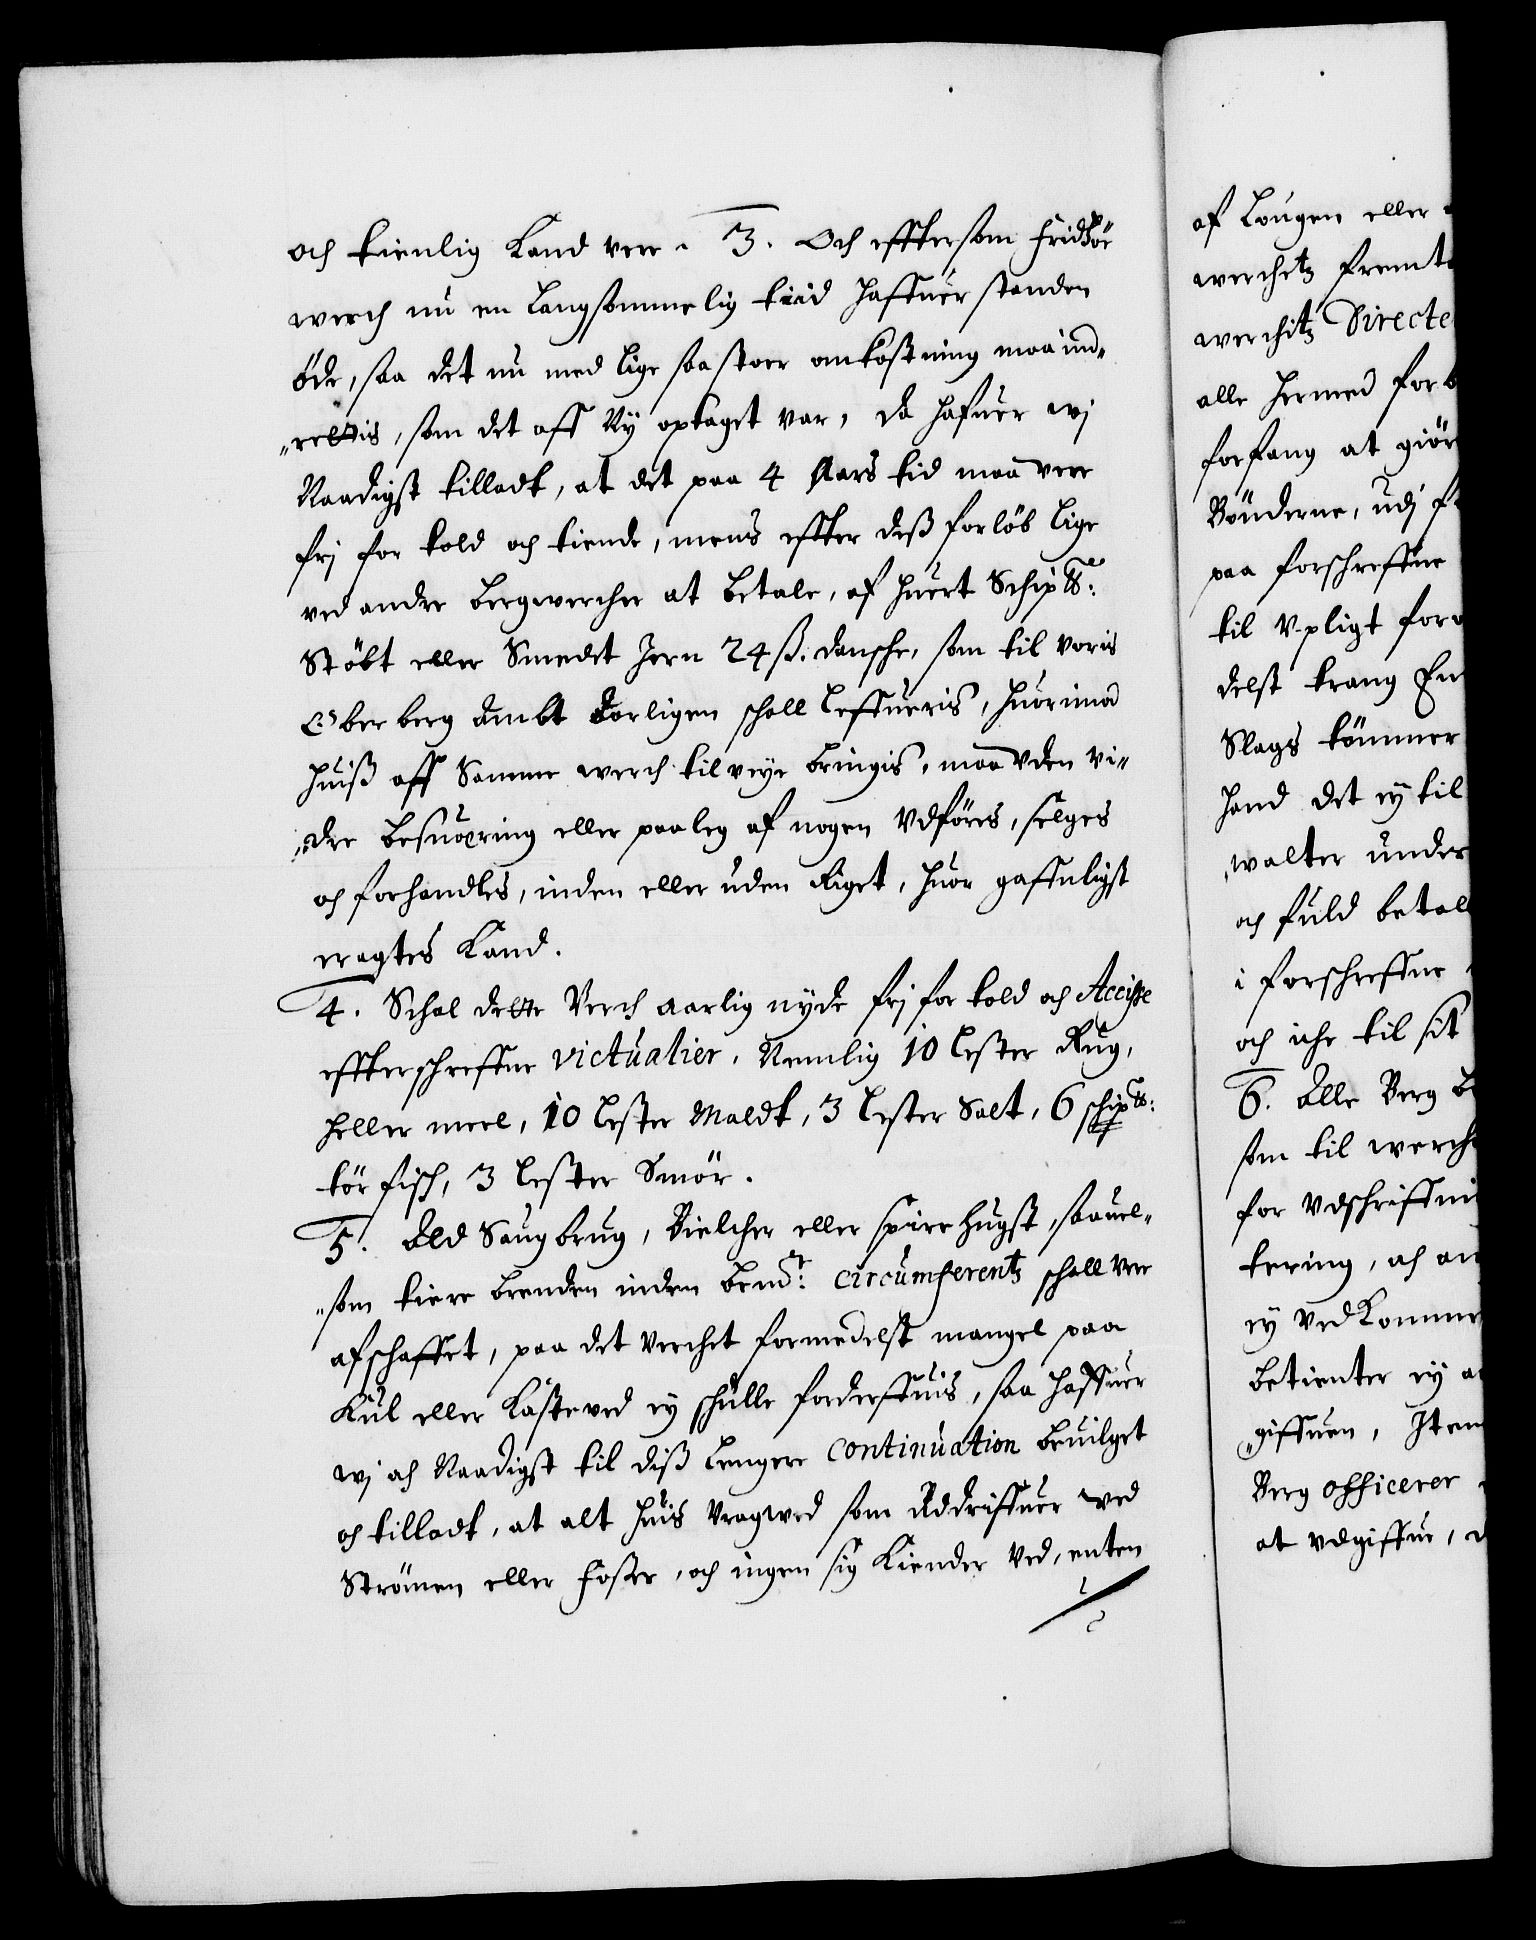 och tienlig kand vere. 3. Och effttersom Fridtzör
werch nu en langsommelig tiid haffuer standen
öde, saa det nu med lige saa stoer omkostning maa ind„
„rettis, som det aff Ny optaget var, da hafuer wj
Naadigst tilladt, at det paa 4 Aars tid maa vere
frj for told och tiende, mens effter deß forlöb lige
ved andre bergwercher at betale, af huert Schip ℔:
Stöbt eller Smedet Jern 24 ß. dansche, som til voris
Ober berg Ambt Aarligen schall leffueris, huorimod
huiß aff Samme werch til veye bringis, maa Vden vi„
„dre besuæring eller paaleg af nogen Vdföres, selges
och forhandles, inden eller uden Riget, huor gaffnligst
eragtes kand.
4. Schal dette Verch aarlig nyde frj for told och Accisse
effterschreffne victualier, Nemlig 10 lester Rug,
heller meel, 10 lester Maldt, 3 lester Salt, 6 schip ℔:
tör fisch, 3 lester Smör.
5. Ald Saugbrug, Bielcher eller spire hugst, saauel„
„som tiere brenden inden bemt: circumferentz schall vere
afschaffet, paa det Verchet formedelst mangel paa
Kul eller kasteved ey schulle forderffuis, saa haffuer
wj och Naadigst til diß lengere continuation beuilget
och tilladt, at alt huis Vragved som Addriffuer ved
Strömen eller Foßer, och ingen sig kiender Ved, enten
af Laugen eller
werchetz fremt
werchitz Directe
alle hermed forb
forfang at giör
Bönderne, udj f
paa forschreffne
til V-pligt for
delst trang
Slags tömmer
hand det ey til
„walter under
och fuld betal
i forschreffne
och iche til sit
6. Alle Berg b
som til werch
for Vdschriffni
tering, och an
ey vedkomme
betienter ey a
„giffuen, Item
Berg officerer
at vdgiffue, d